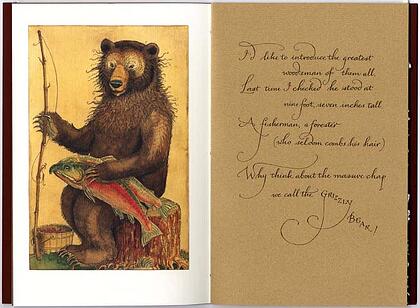 I'd like to introduce the greatest
woodsman of them all.
Last time I checked he stood at
nine foot, seven inches tall.
A fisherman, a forester
(who seldom combs his hair)
Why think about the massive chap
we call the GRIZZLY
BEAR!